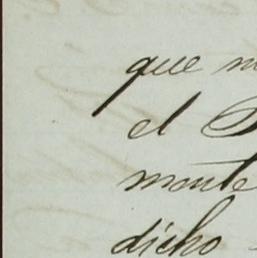 que
el
mente
dicho